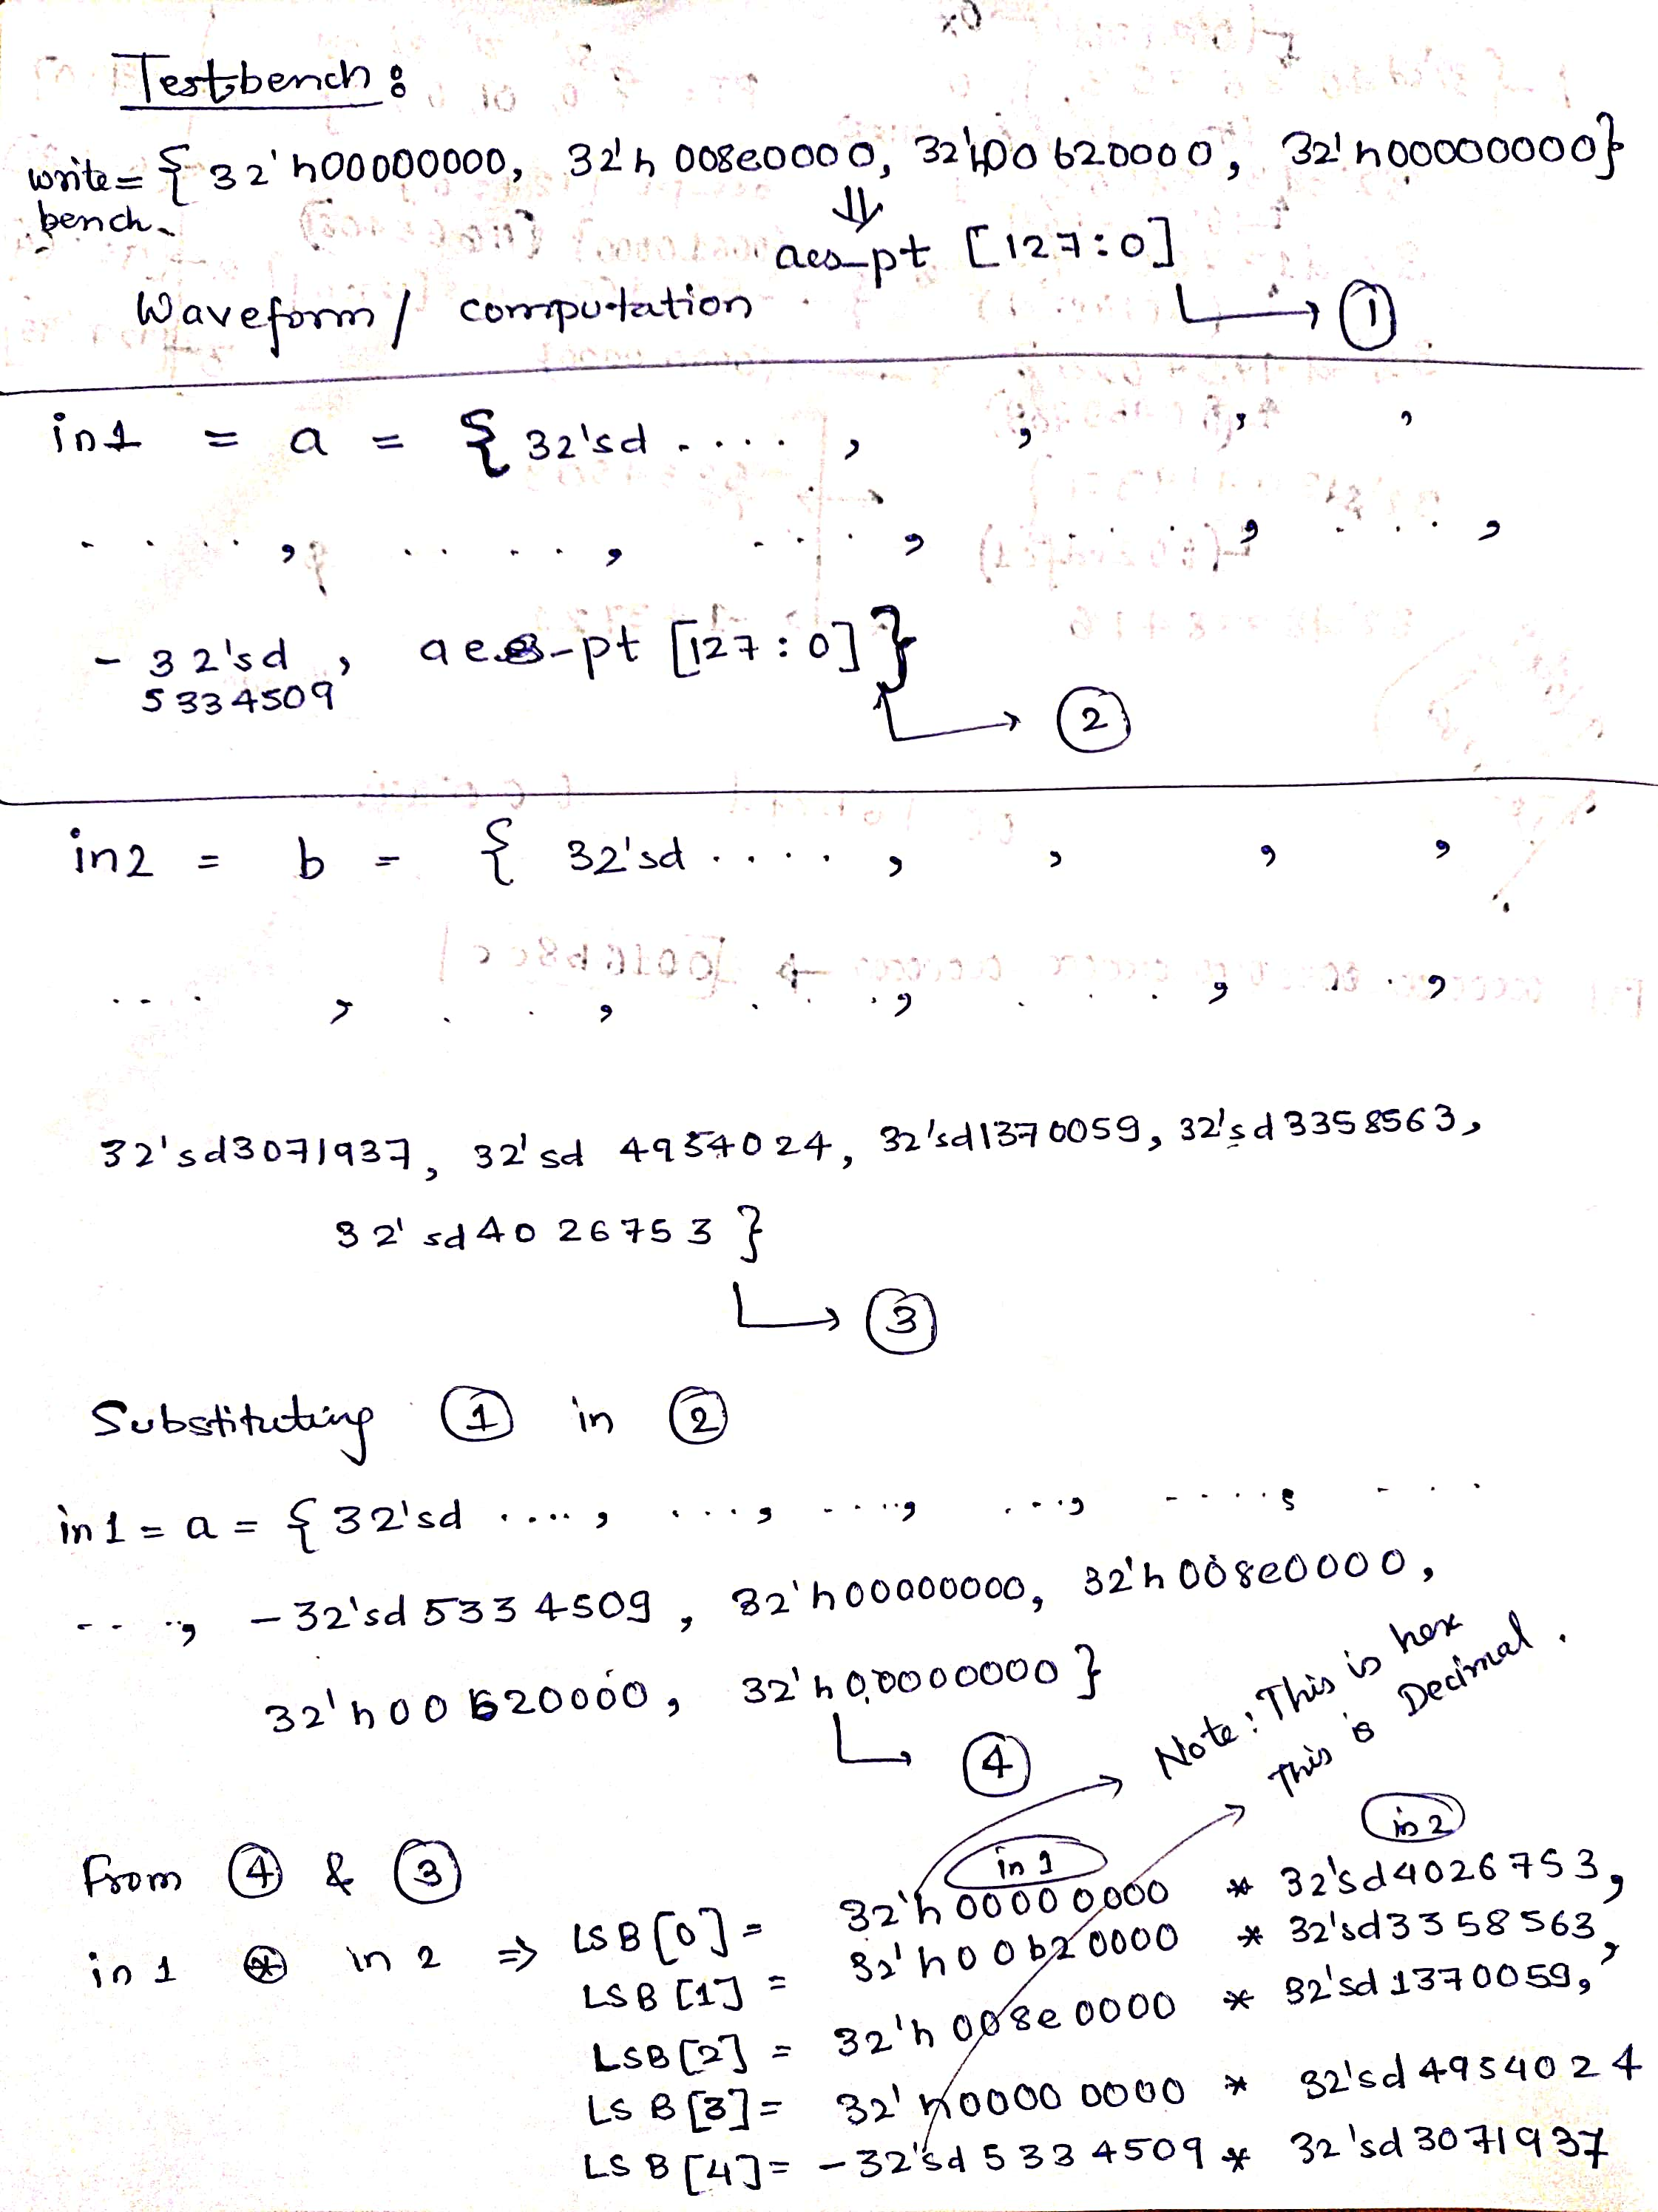 Testbench :
write = { 32'h00000000, 32'h 008e0000, 32'h00620000, 32'h00000000}
bench
⇓
aes_pt [127:0]
Waveform / computation
→ ①
in1 = a = { 32'sd . . . . , , , ,
. . . . . , . . . . . , . . . . , . . . , . . . . ,
- 32'sd , aes-pt [127:0] }
5334509
→ ②
in2 = b = { 32'sd . . . . , , , ,
. . . . , . . , . . . , . . . , . . ,
32'sd3071937, 32'sd 4954024, 32'sd1370059, 32'sd3358563,
32'sd4026753 }
→ ③
Substituting ① in ②
in1 = a = { 32'sd ...., ...., ...., ...., ...., ....
...., -32'sd 5334509, 32'h00000000, 32'h008e0000,
32'h00620000, 32'h00000000 }
→ ④
Note: This is hex
This is Decimal.
From ④ & ③
in1 in2
in1 ⊛ in2 ⇒ LSB[0] = 32'h00000000 * 32'sd4026753,
LSB[1] = 32'h00620000 * 32'sd3358563,
LSB[2] = 32'h008e0000 * 32'sd1370059,
LSB[3] = 32'h00000000 * 32'sd4954024
LSB[4] = -32'sd5334509 * 32'sd3071937